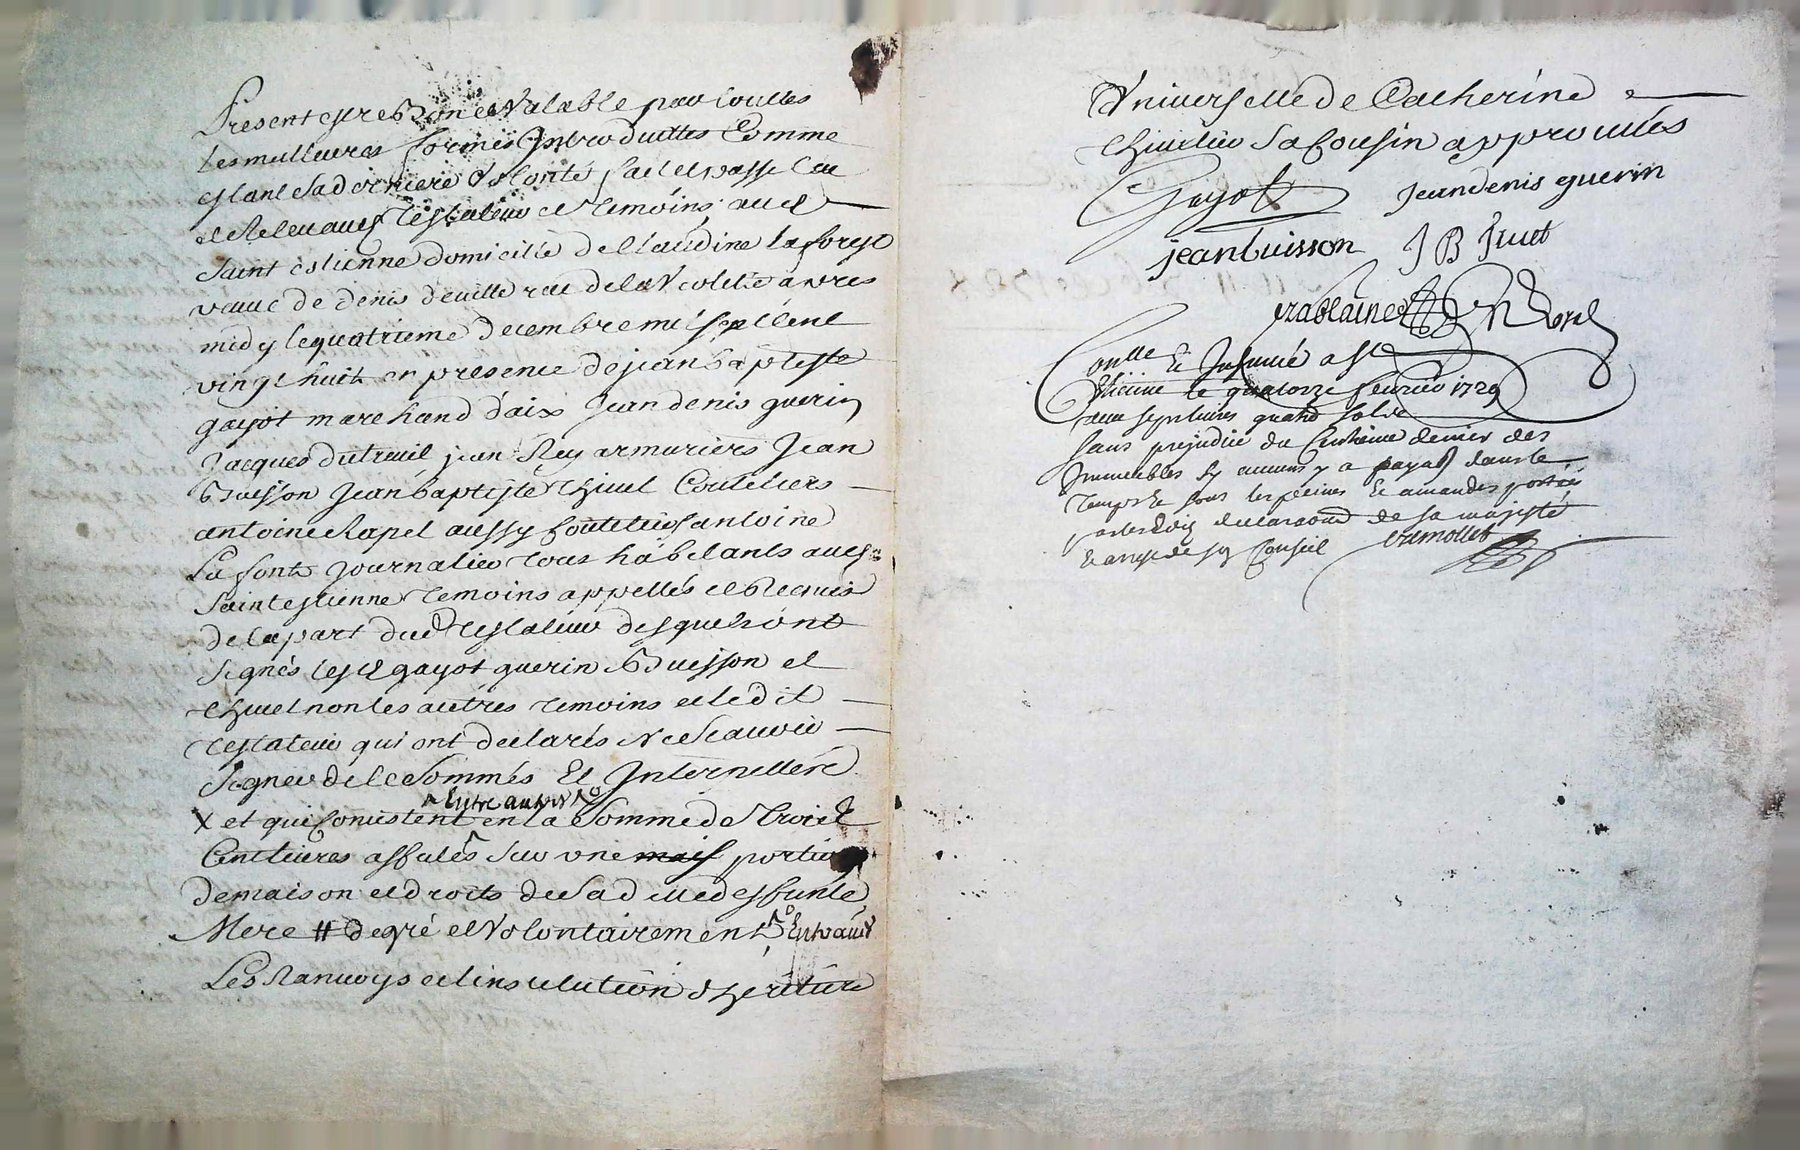 Present estre Bon et Valable par touttes
Les meilleures formes Introduittes Comme
estant sa derniere Volonté fait et passé Leu
et Releu audt Testateur et temoins aud
Saint estienne domicilié de Claudine Laforest
veuve de denis deville rue de la Violette apres
midy le quatrieme decembre mil sept Cent
vingt huit en presence de jean baptiste
gayot marchand d'aix Jean denis guerin
Jacques dutreuil jean Rey armuriers Jean
Buisson Jean baptiste thivet Couteliers
antoine Chapel aussy Coutelier antoine
La font Journalier tous habitants aud
Saint estienne temoins appellés et Requis
de la part dud Testateur desquels ont
Signés lesd gayot guerin Buisson et
thivet non les autres temoins et ledit
testateur qui ont declarés Ne Scavoir
Signer de ce Sommés Et Interpellés
entre autres
X et qui Consistent en la Somme de Trois
Cent livres assulés Sur une mais portion
de maison et droits de Sad ditte deffunte
Mere # de gré et Volontairement
Les Ranvoys et l'institution d'heritiere
Vniverselle de Catherine
sa Cousin approuvés
Gayot Jean denis guerin
jean buisson J B Tivet
Con.lle et Insinué a St
Etienne le quatorze fevrier 1729
sans prejudice du Centieme denier des
Immeubles sy aucuns y a payable dans le
temps et sous les peines et amandes portées
par les Edits declarations de sa majesté
et arrets de son Conseil